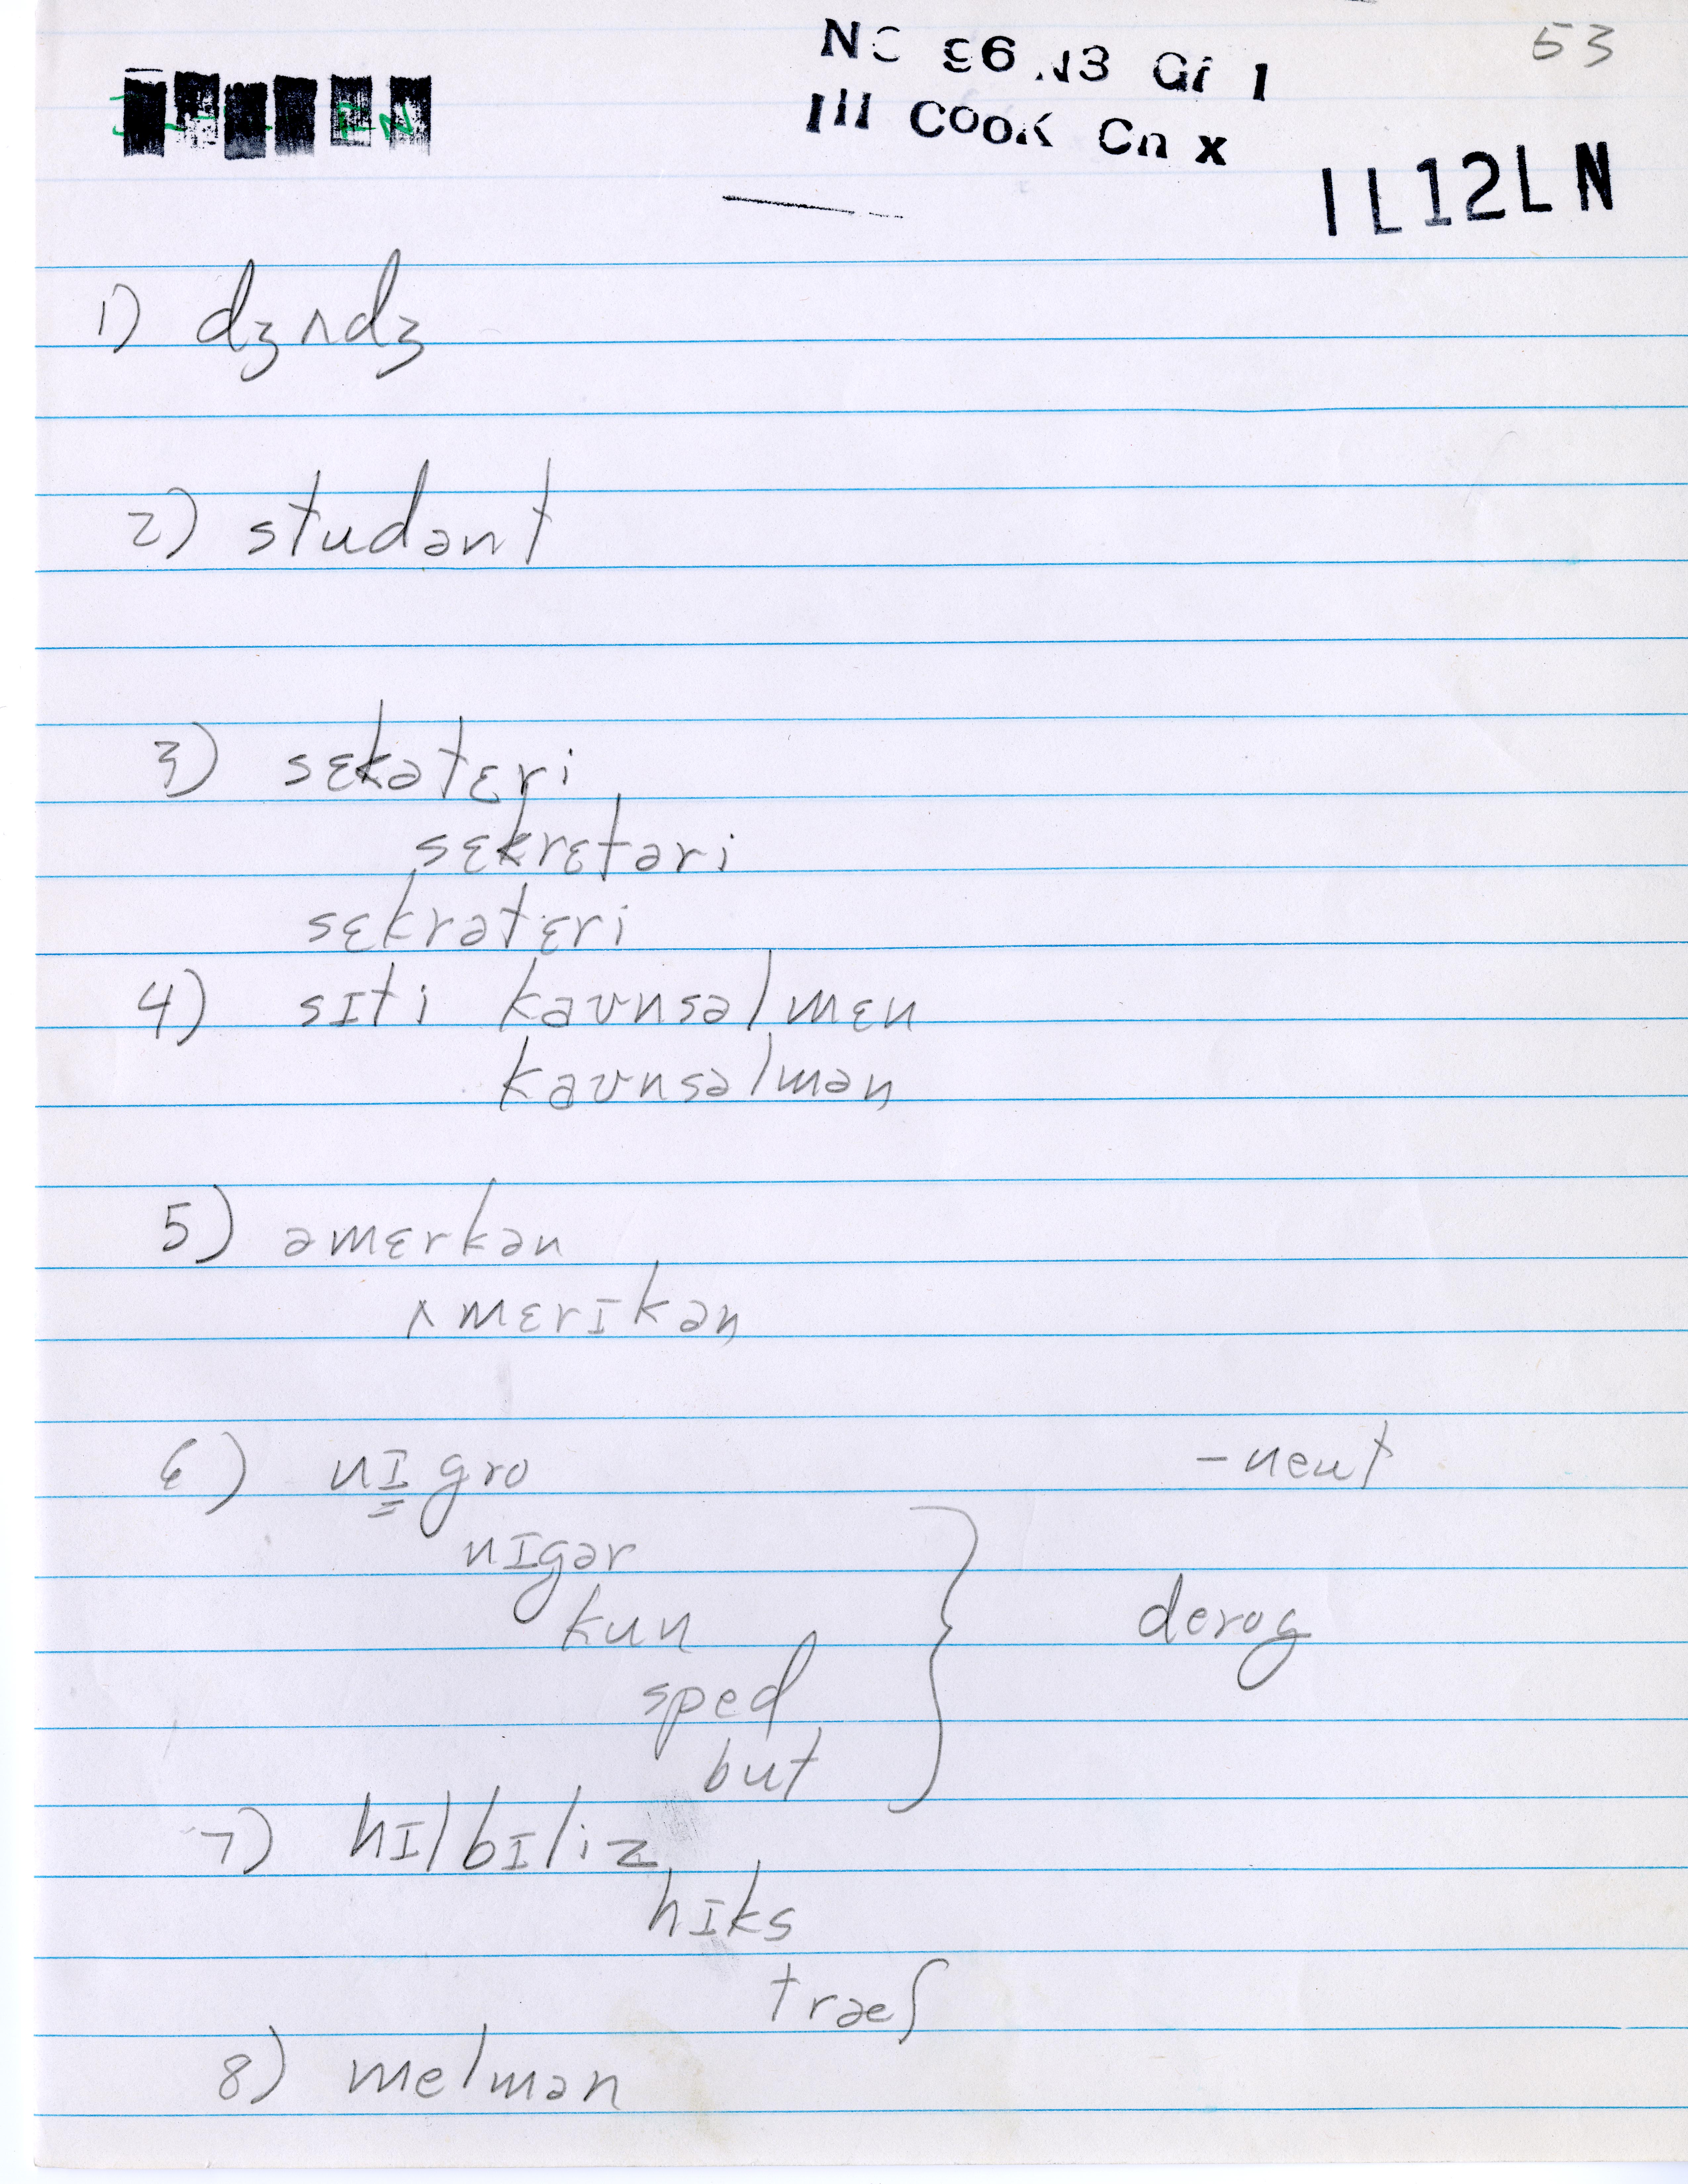 53
NC 96 N3 Gf 1
Ill Cook Cn x
IL12LN
1) dʒʌdʒ
2) studənt
3) sɛkətɛri
sɛkrɛtəri
sɛkrətɛri
4) sɪti kaʊnsəlmɛn
kaʊnsəlmən
5) əmɛrkən
ʌmɛrɪkən
6) nɪgro - neut
nɪgər
kun
sped
but
derog
7) hɪlbɪliz
hɪks
træʃ
8) melmən